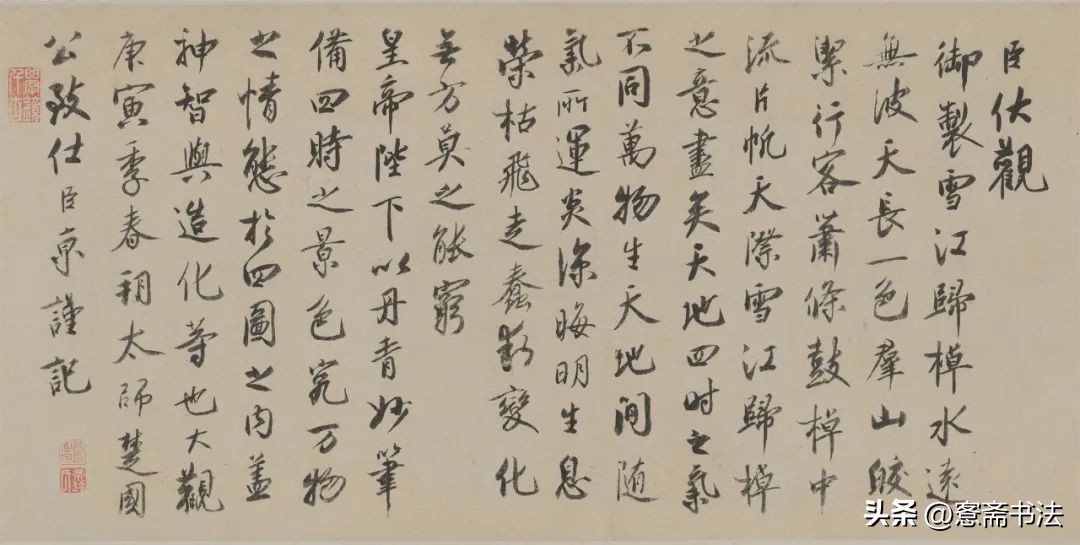 臣伏觀
御製雪江歸棹水遠
無波天長一色羣山皎
潔行客蕭條鼓棹中
流片帆天際雪江歸棹
之意盡矣天地四時之氣
不同萬物生天地間随
氣所運炎涼晦明生息
榮枯飛走蠢動變化
無方莫之能窮
皇帝陛下以丹青妙筆
備四時之景色究万物
之情態於四圖之内盖
神智與造化等也大觀
庚寅季春朔太師楚國
公致仕臣京謹記
头条@窓斋书法